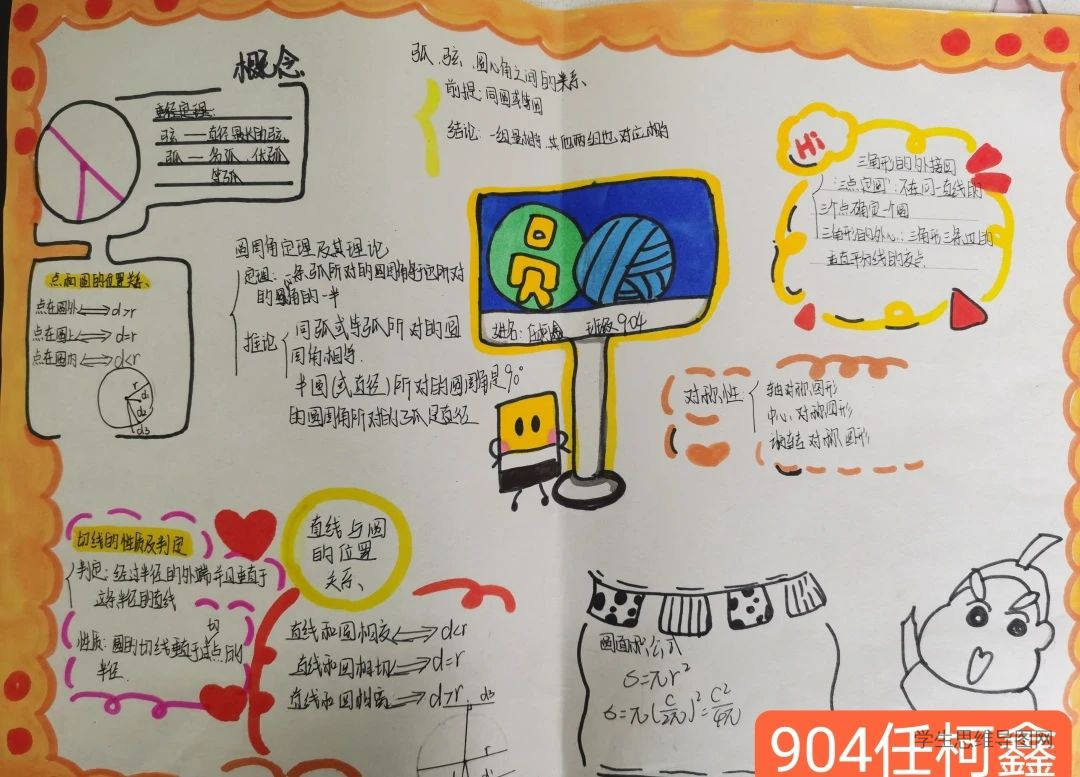 概念
垂径定理:
弦 — 直径最长的弦
弧 — 劣弧、优弧
等弧
弧、弦、圆心角之间的关系、
前提:同圆或等圆
结论:一组量相等,其他两组也对应相等
Hi
三角形的外接圆
"三点定圆":不在同一直线的
三个点确定一个圆
三角形的外心:三角形三条边的
垂直平分线的交点
点和圆的位置关系、
点在圆外⟺d>r
点在圆上⟺d=r
点在圆内⟺d<r
r
d1
d2
d3
圆周角定理及其理论
定理:一条弧所对的圆周角等于它所对
的圆心角的一半
推论
同弧或等弧所对的圆
周角相等.
半圆(或直径)所对的圆周角是90°
由圆周角所对的弦是直径
圆
姓名: 任柯鑫 班级904
对称性:
轴对称图形
中心对称图形
旋转对称图形
切线的性质及判定
判定:经过半径的外端并且垂直于
这条半径的直线
性质:圆的切线垂直于过切点的
半径.
直线与圆
的位置
关系、
直线和圆相交⟺d<r
直线和圆相切⟺d=r
直线和圆相离⟺d>r
d3
r
圆面积公式
S=πr²
S=π(C/2π)²=C²/4π
学生思维导图网
904任柯鑫